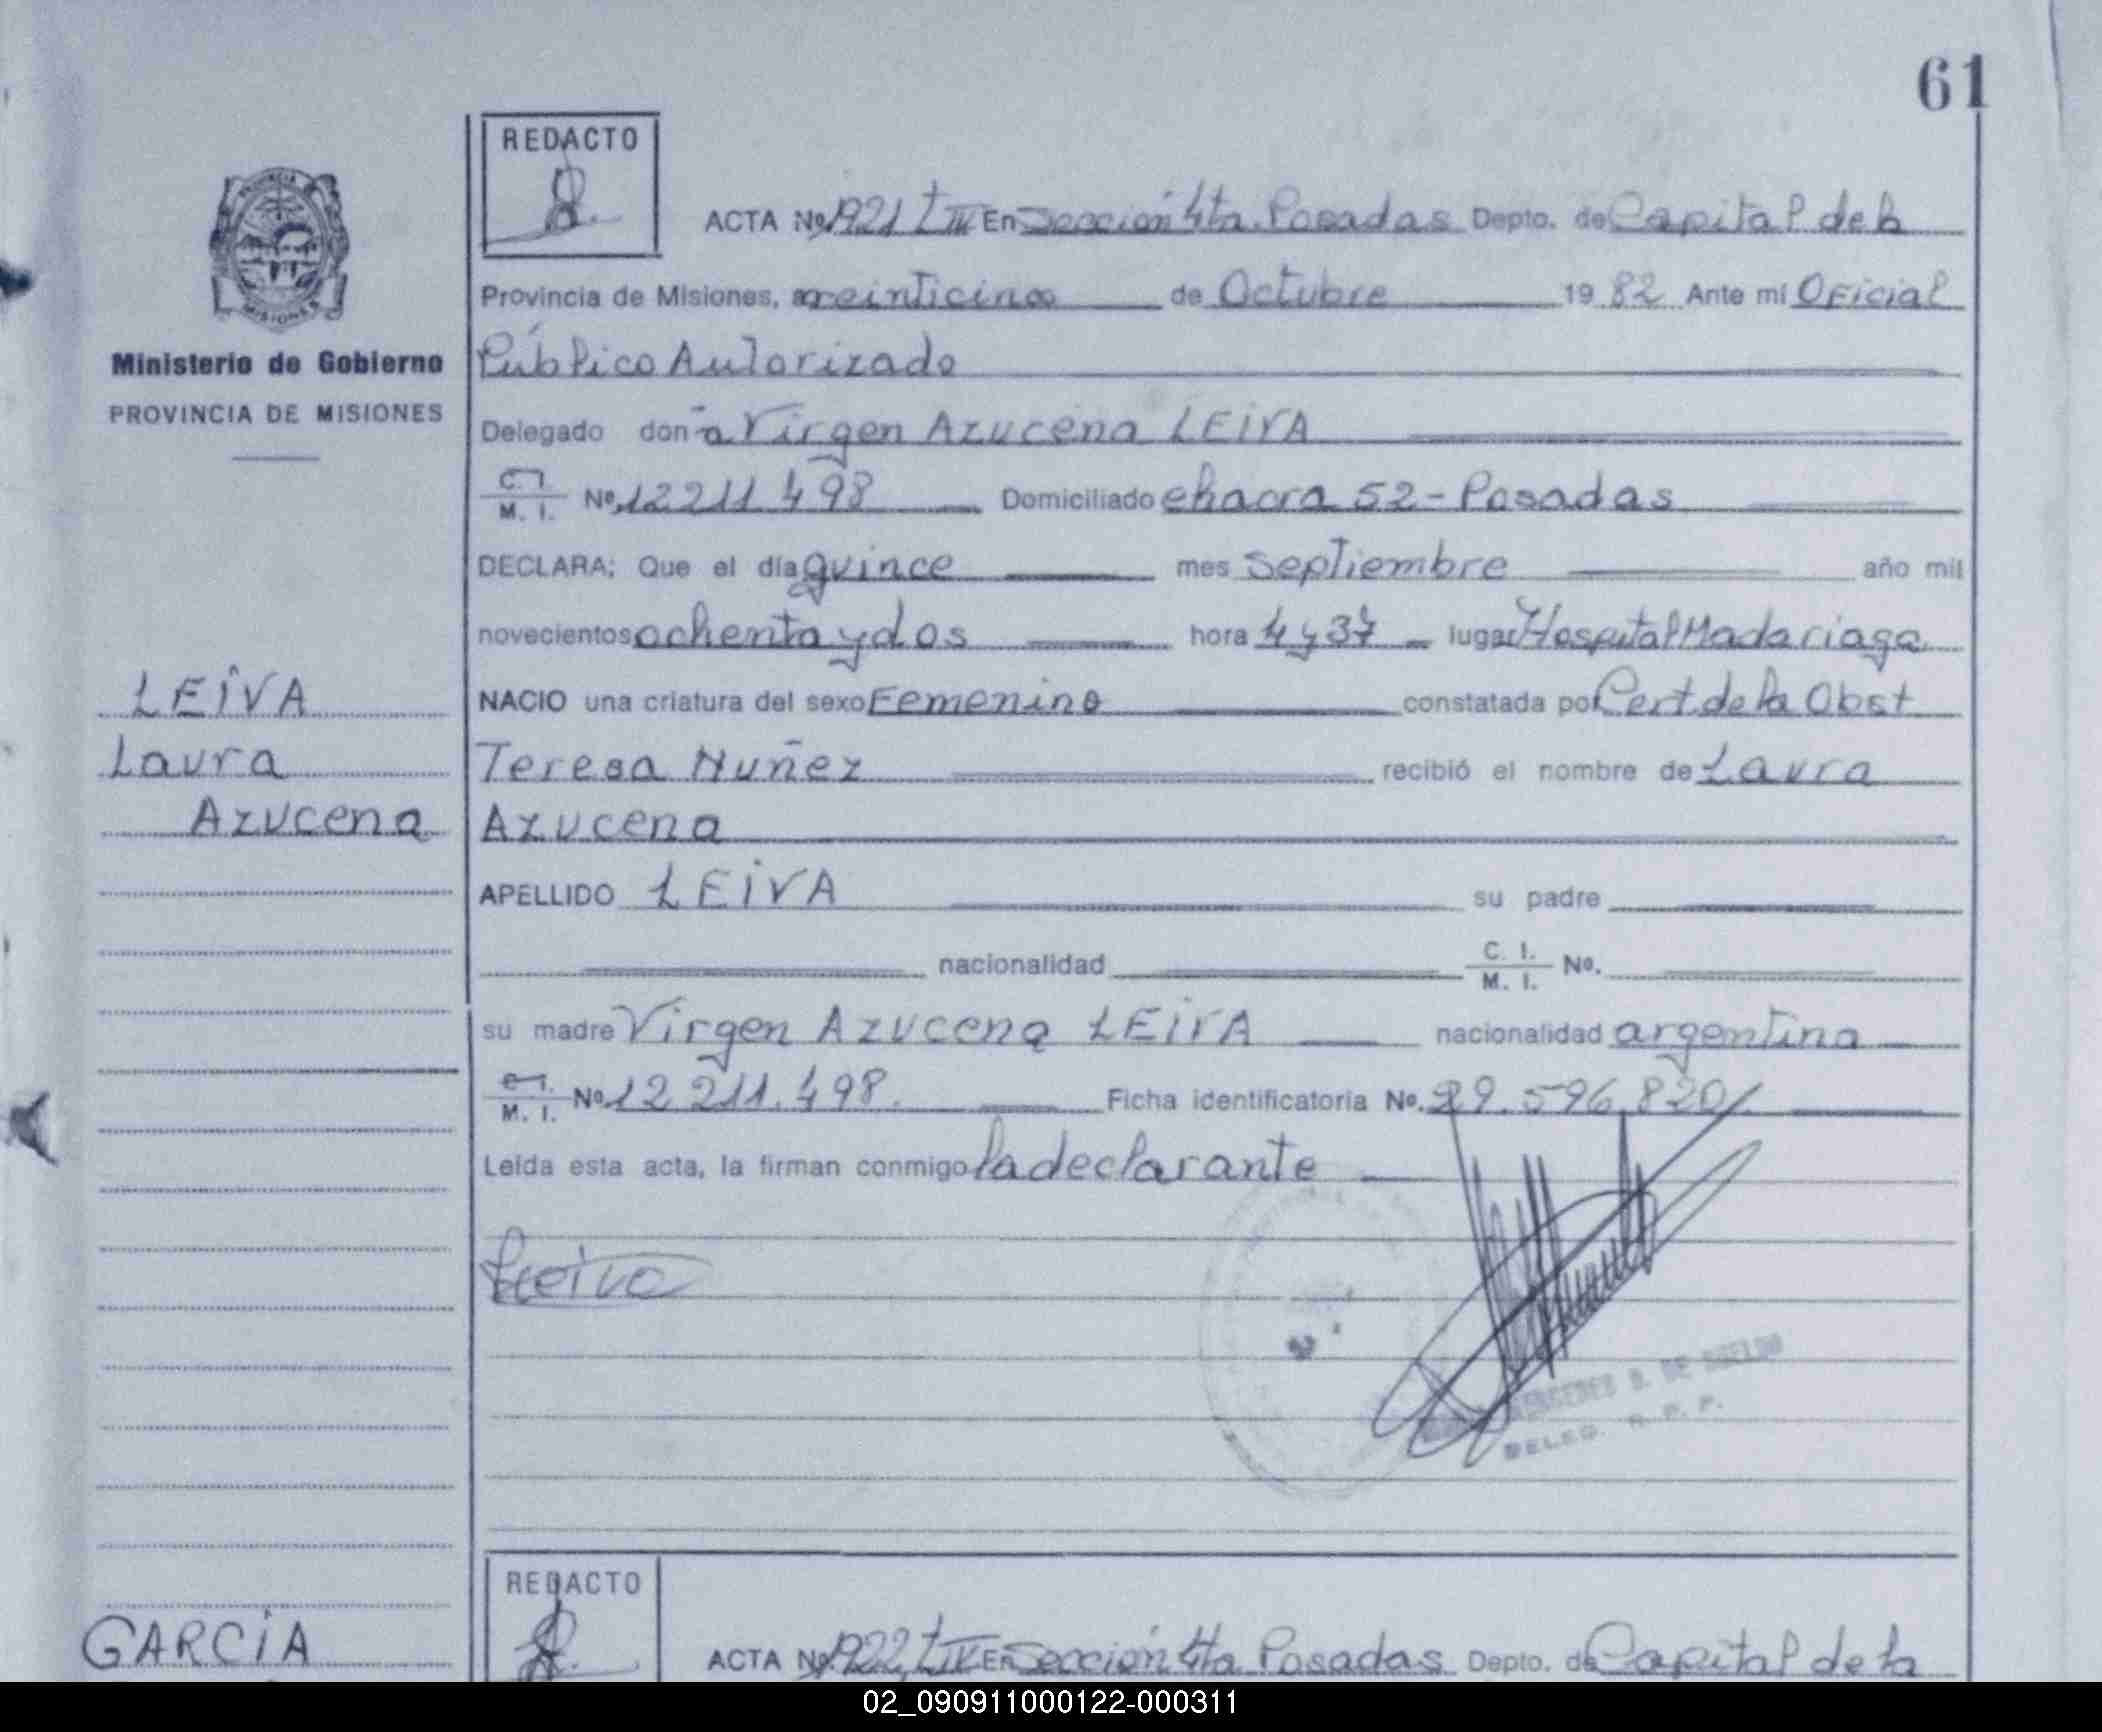 61
REDACTO
ACTA Nº 1921 T IV En Sección 4ta. Posadas Depto. de Capital de la
Provincia de Misiones, a veinticinco de Octubre 19 82 Ante mí Oficial
Público Autorizado
Delegado doña Virgen Azucena LEIVA
C. I.
M. I. Nº 12211498 Domiciliado chacra 52 - Posadas
DECLARA; Que el día quince mes septiembre año mil
novecientos ochenta y dos hora 4 y 37 lugar Hospital Madariaga
NACIO una criatura del sexo Femenino constatada por Cert. de la Obst
Teresa Nuñez recibió el nombre de Laura
Azucena
APELLIDO LEIVA su padre
nacionalidad C. I.
M. I. Nº.
su madre Virgen Azucena LEIVA nacionalidad argentina
C. I.
M. I. Nº 12 211.498. Ficha identificatoria Nº. 29.596.820
Leída esta acta, la firman conmigo la declarante
Leiva
DELEG. R. P. P.
PROVINCIA DE
MISIONES
Ministerio de Gobierno
PROVINCIA DE MISIONES
LEIVA
Laura
Azucena
REDACTO
GARCÍA
ACTA Nº 1922 T IV En Sección 4ta Posadas Depto. de Capital de la
02_090911000122-000311